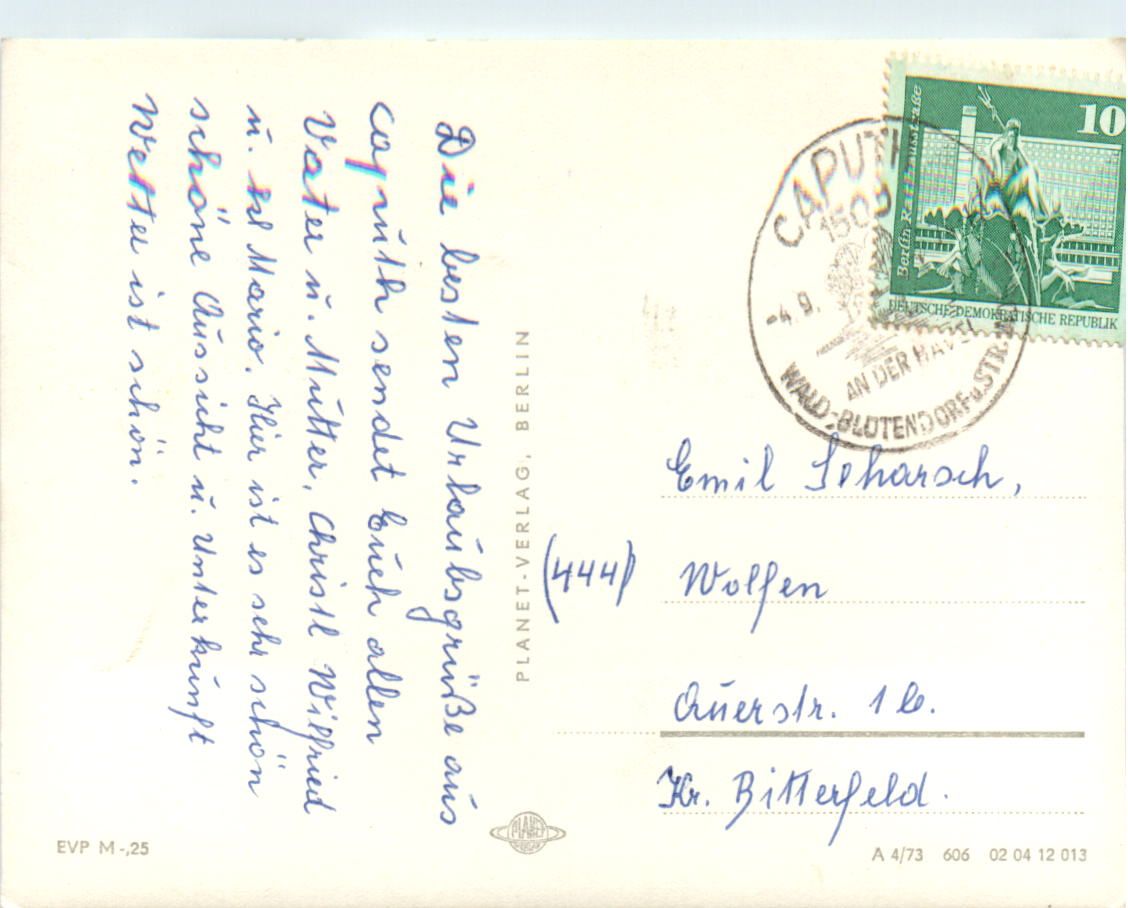 Die besten Urlaubsgrüße aus
Caputh sendet Euch allen
Vater u. Mutter, Christl Wilfried
u. Mario. Hier ist es sehr schön
schöne Aussicht u. Unterkunft
Wetter ist schön.
PLANET-VERLAG, BERLIN
PLANET
EVP M -,25
10
Berlin
DEUTSCHE DEMOKRATISCHE REPUBLIK
CAPUTH
1503
-4.9.
AN DER HAVEL
WALD-BLÜTENDORF u. STR.
Emil Scharsch,
(444) Wolfen
Auerstr. 1b.
Kr. Bitterfeld.
A 4/73 606 02 04 12 013